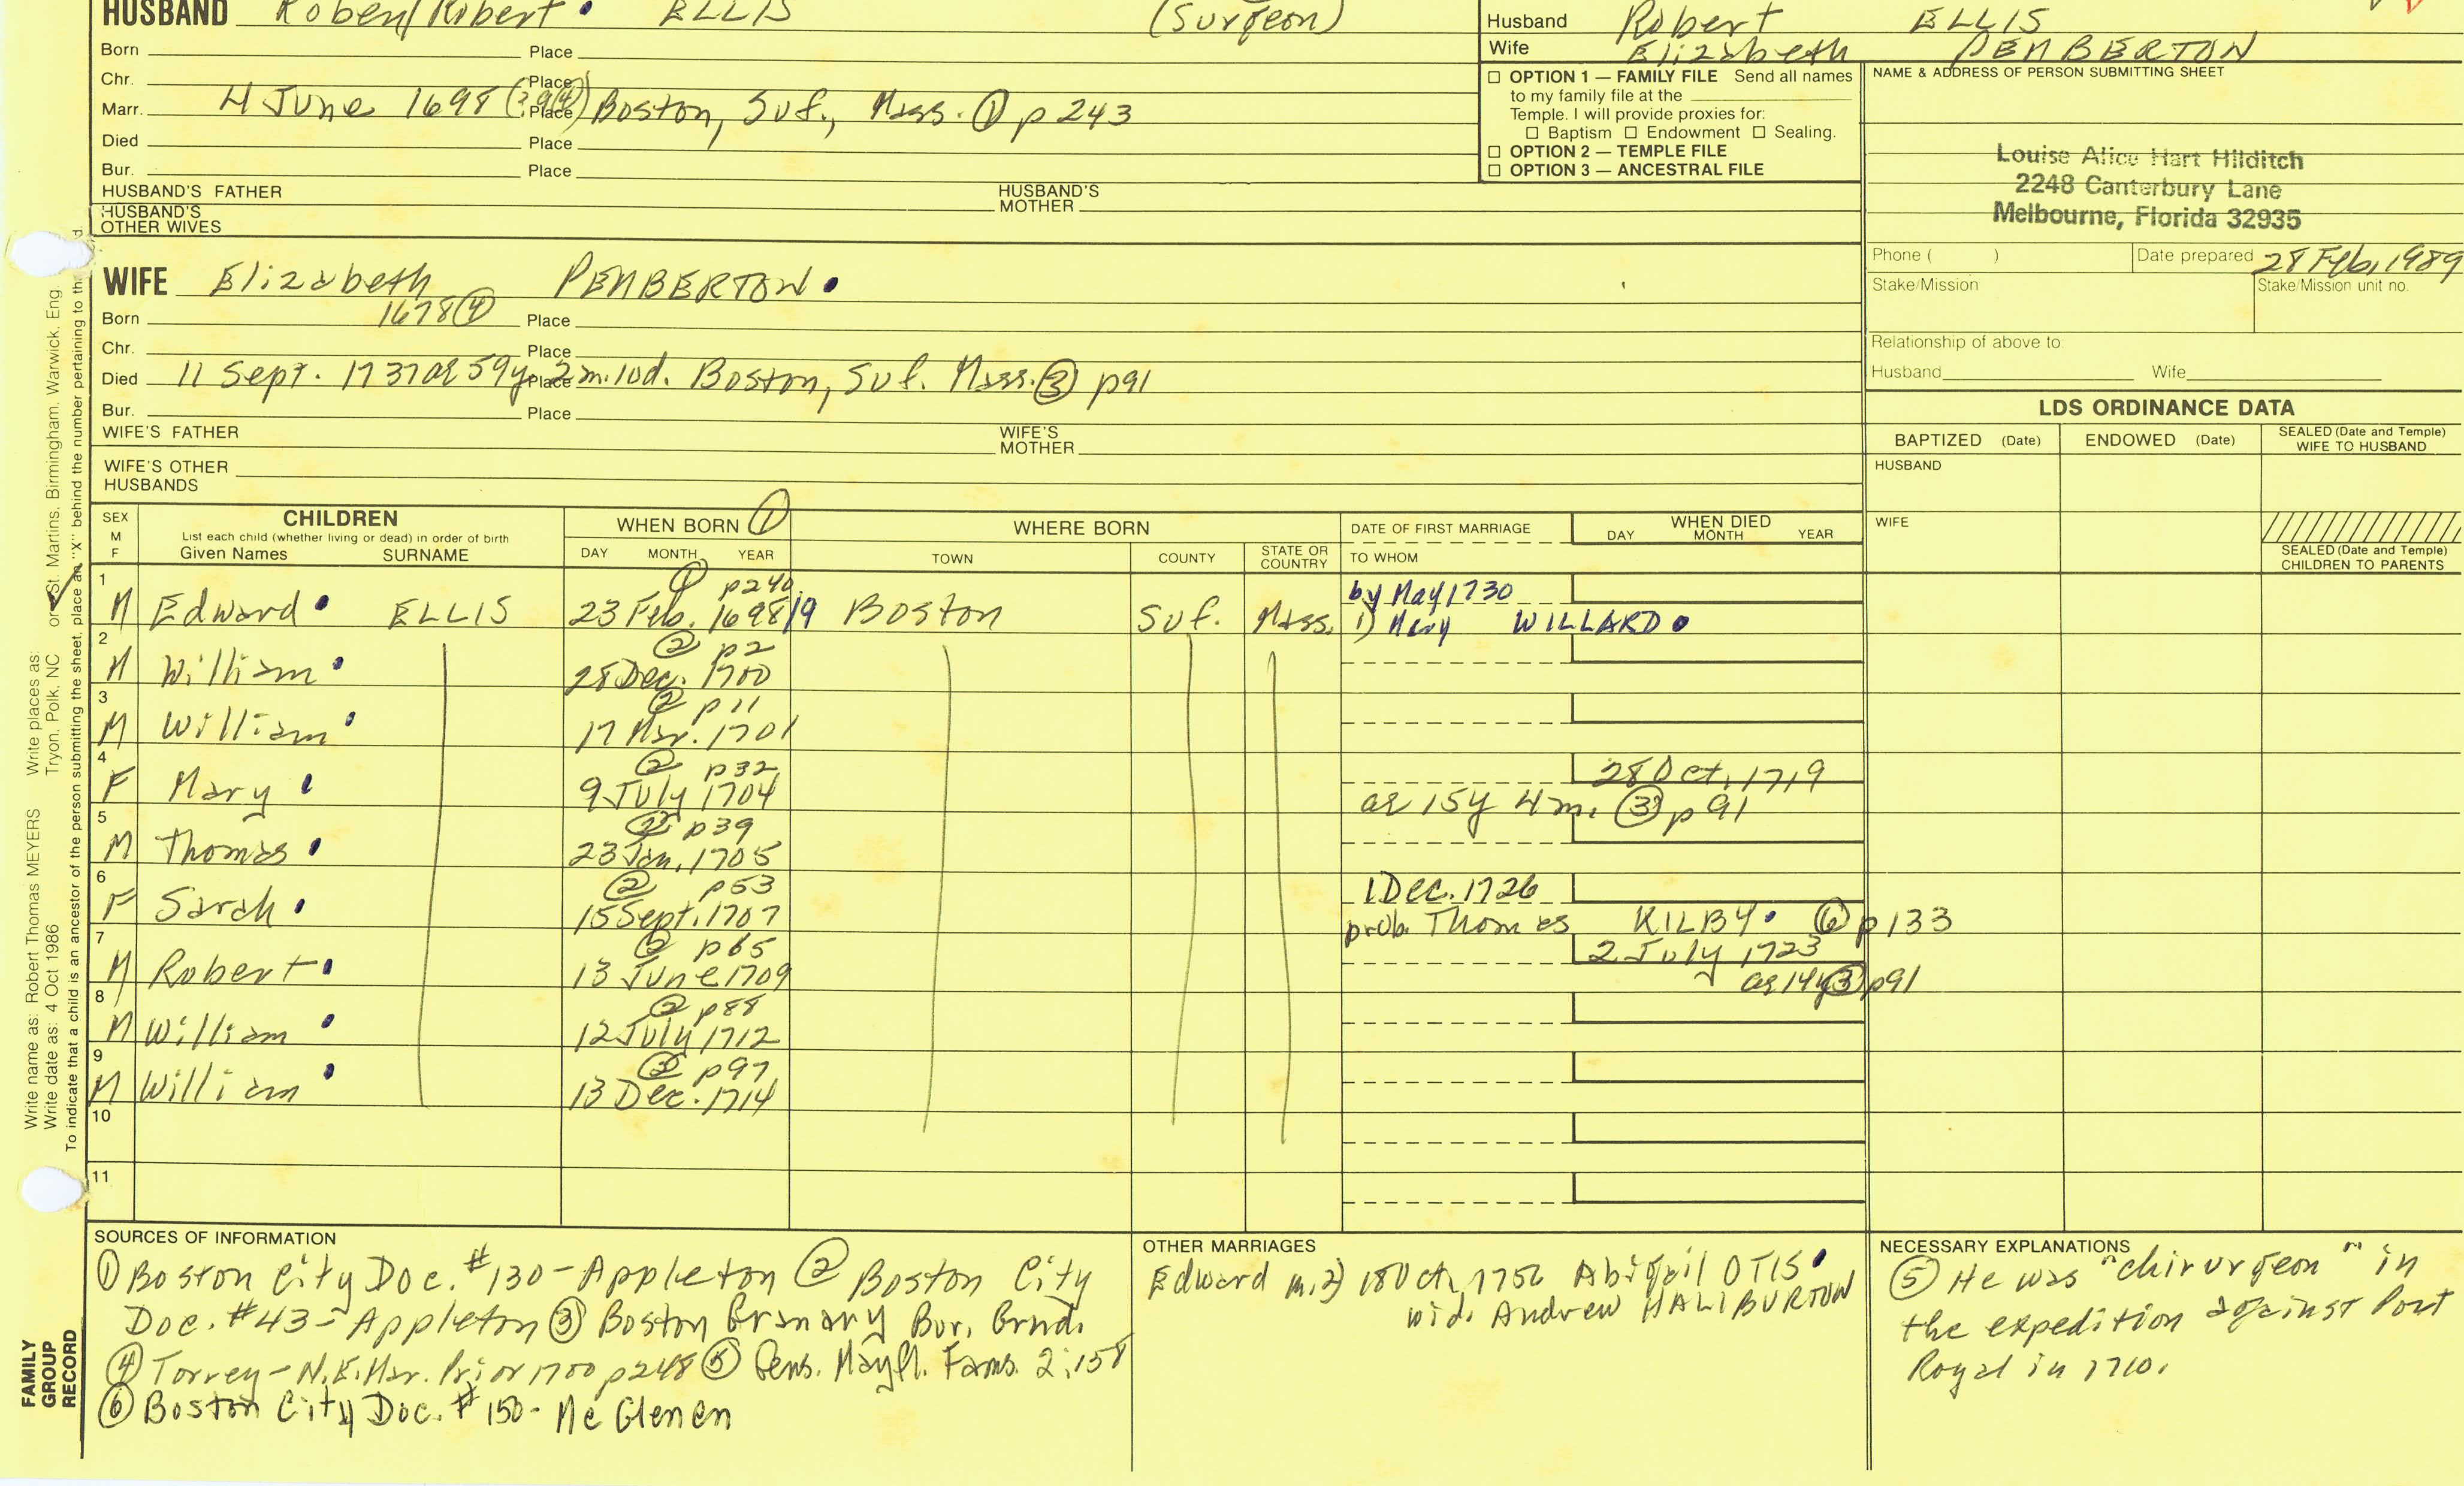 HUSBAND Roben/Robert ELLIS (Surgeon)
Husband Robert ELLIS
Wife Elizabeth PENBERTON
Born Place
Chr. Place
Marr. 4 June 1698 Place Boston, Suf., Mass. ① p 243
Died Place
Bur. Place
HUSBAND'S FATHER HUSBAND'S MOTHER
HUSBAND'S OTHER WIVES
☐ OPTION 1 — FAMILY FILE Send all names
to my family file at the
Temple. I will provide proxies for:
☐ Baptism ☐ Endowment ☐ Sealing.
☐ OPTION 2 — TEMPLE FILE
☐ OPTION 3 — ANCESTRAL FILE
NAME & ADDRESS OF PERSON SUBMITTING SHEET
Louise Alice Hart Hilditch
2248 Canterbury Lane
Melbourne, Florida 32935
Phone ( ) Date prepared 28 Feb, 1989
Stake/Mission Stake/Mission unit no.
Relationship of above to:
Husband Wife
WIFE Elizabeth PENBERTON
Born 1678 ④ Place
Chr. Place
Died 11 Sept. 1737 ae 59y Place 2m. 10d. Boston, Suf. Mass. ③ p91
Bur. Place
WIFE'S FATHER WIFE'S MOTHER
WIFE'S OTHER HUSBANDS
LDS ORDINANCE DATA
BAPTIZED (Date) ENDOWED (Date) SEALED (Date and Temple) WIFE TO HUSBAND
HUSBAND
WIFE
SEALED (Date and Temple) CHILDREN TO PARENTS
SEX M F
CHILDREN
List each child (whether living or dead) in order of birth
Given Names SURNAME
WHEN BORN ①
DAY MONTH YEAR
WHERE BORN
TOWN COUNTY STATE OR COUNTRY
DATE OF FIRST MARRIAGE
TO WHOM
WHEN DIED
DAY MONTH YEAR
1 ① p240 by May 1730
M Edward ELLIS 23 Feb. 1698/9 Boston Suf. Mass. 1) Mary WILLARD
2 ② p2
M William 28 Dec. 1700
3 ② p11
M William 17 Mar. 1701
4 ② p32 28 Oct, 1719
F Mary 9 July 1704 ae 15y 4m. ③ p91
5 ② p39
M Thomas 23 Jan. 1705
6 ② p53 1 Dec. 1726
F Sarah 15 Sept. 1707 prob. Thomas KILBY ⑥ p133
7 ② p65 2 July 1723
M Robert 13 June 1709 ae 14y ③ p91
8 ② p88
M William 12 July 1712
9 p97
M William 13 Dec. 1714
10
11
SOURCES OF INFORMATION
① Boston City Doc. #130 - Appleton ② Boston City
Doc. #43 - Appleton ③ Boston Granary Bur. Grnd.
④ Torrey - N.E. Mar. Prior 1700 p248 ⑤ Gens. Mayfl. Fams. 2:158
⑥ Boston City Doc. #150 - Mc Glenen
OTHER MARRIAGES
Edward m. 2) 18 Oct, 1756 Abigail OTIS
wid. Andrew HALIBURTON
NECESSARY EXPLANATIONS
⑤ He was "chirurgeon" in
the expedition against Port
Royal in 1710.
FAMILY
GROUP
RECORD
Write name as: Robert Thomas MEYERS Write places as: Tryon, Polk, NC or St. Martins, Birmingham, Warwick, Eng.
Write date as: 4 Oct 1986
To indicate that a child is an ancestor of the person submitting the sheet, place an "X" behind the number pertaining to